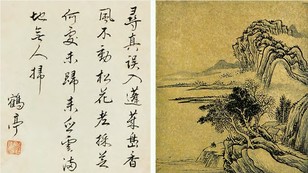 尋真誤入蓬萊島香
風不動松花老採芝
何處未歸来白雲滿
地無人掃
鶴亭